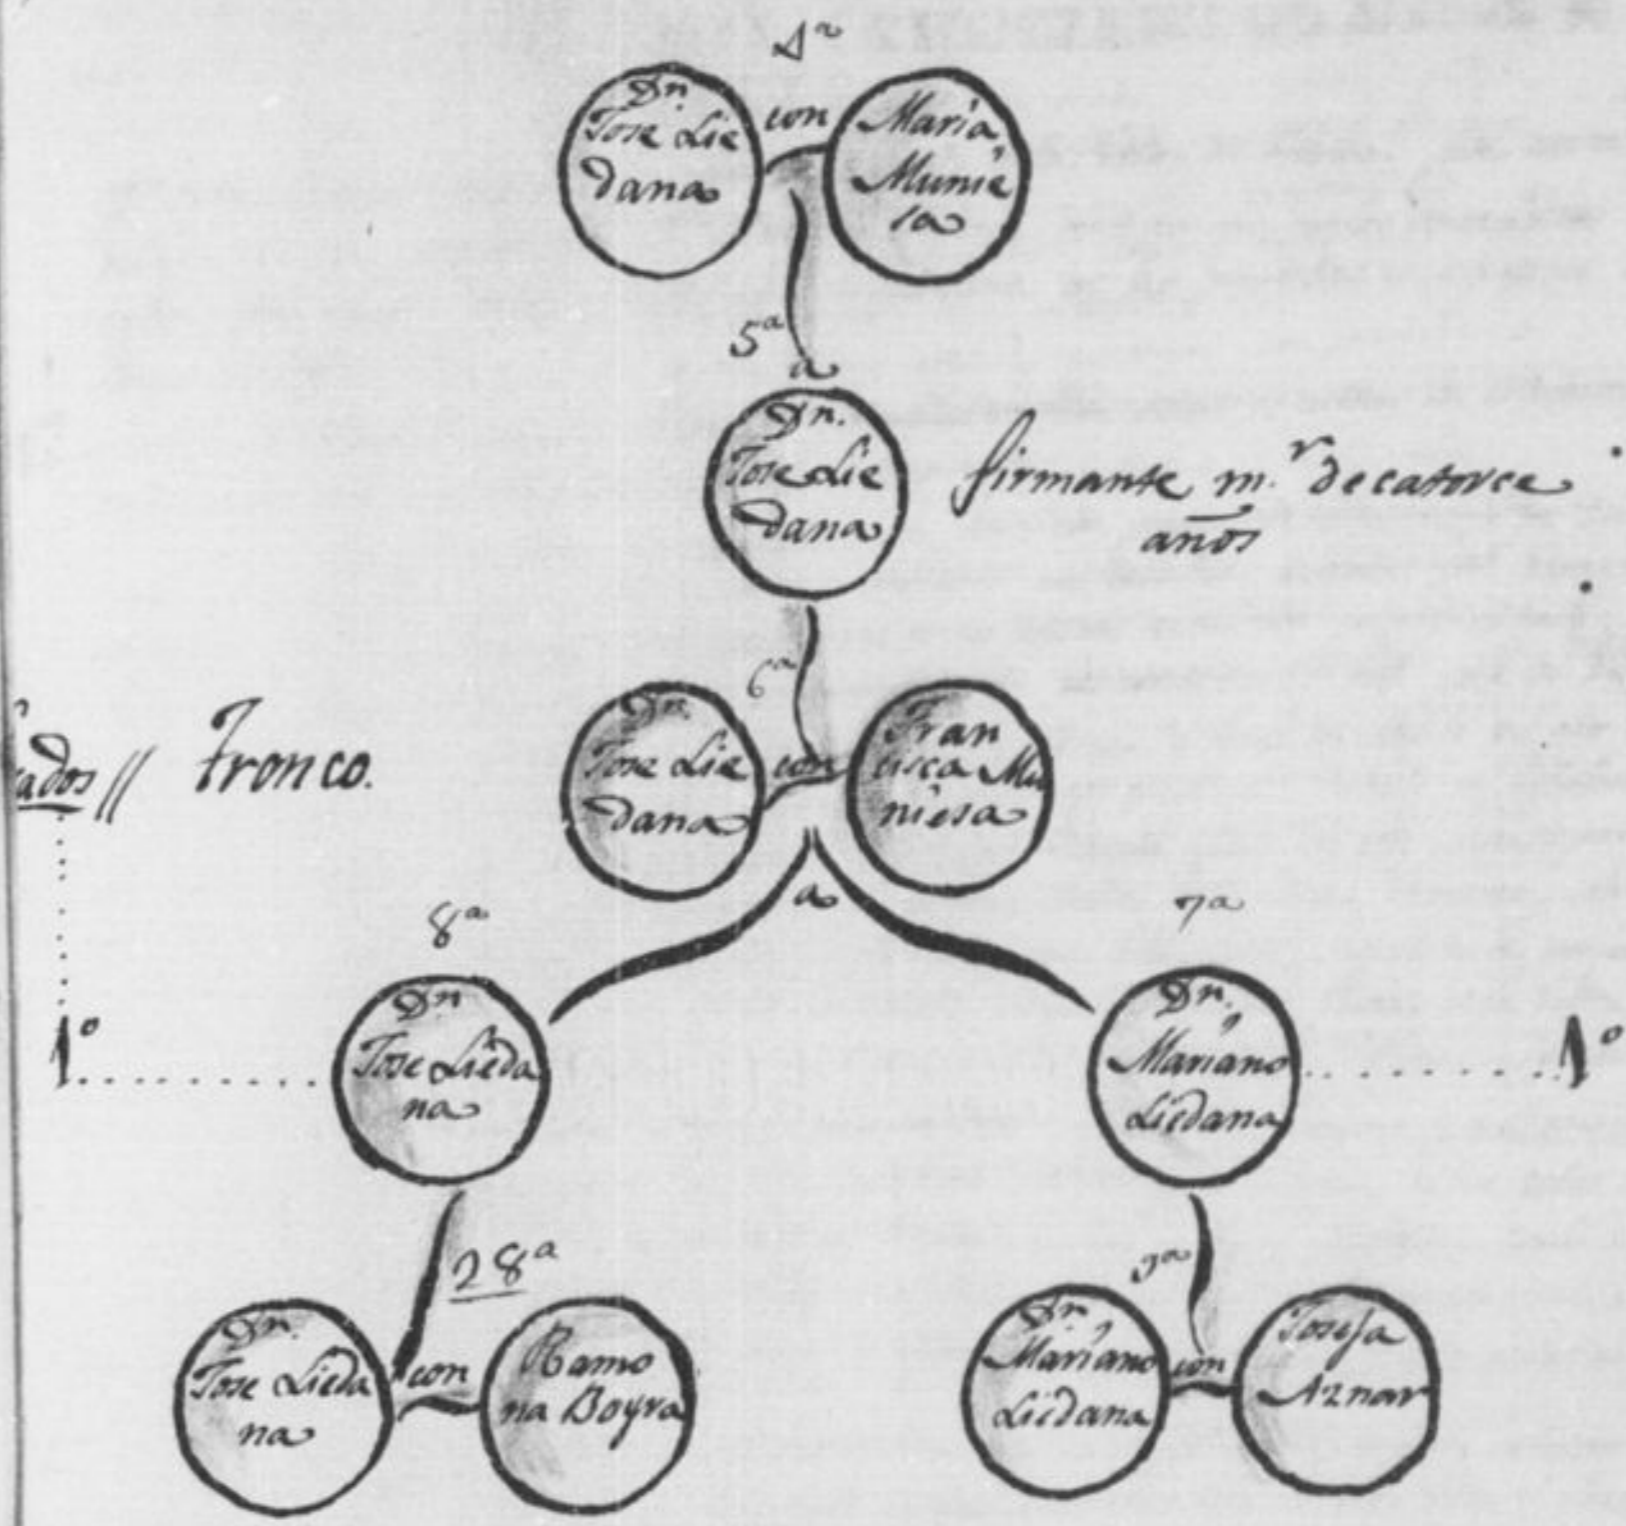 4ª
Dn.
Jose Lie
dana
con
Maria
Munie
sa
5ª
a
Dn.
Jose Lie
dana
firmante m.r de catorce
años
6ª
Dn.
Jose Lie
dana
con
Fran
cisca Mu
niesa
ados //
Tronco.
a
8ª
7ª
1º
Dn
Jose Lieda
na
Dn.
Mariano
Liedana
1º
28ª
Dn.
Jose Lieda
na
con
Ramo
na Boyra
Dn.
Mariano
Liedana
con
Josefa
Aznar